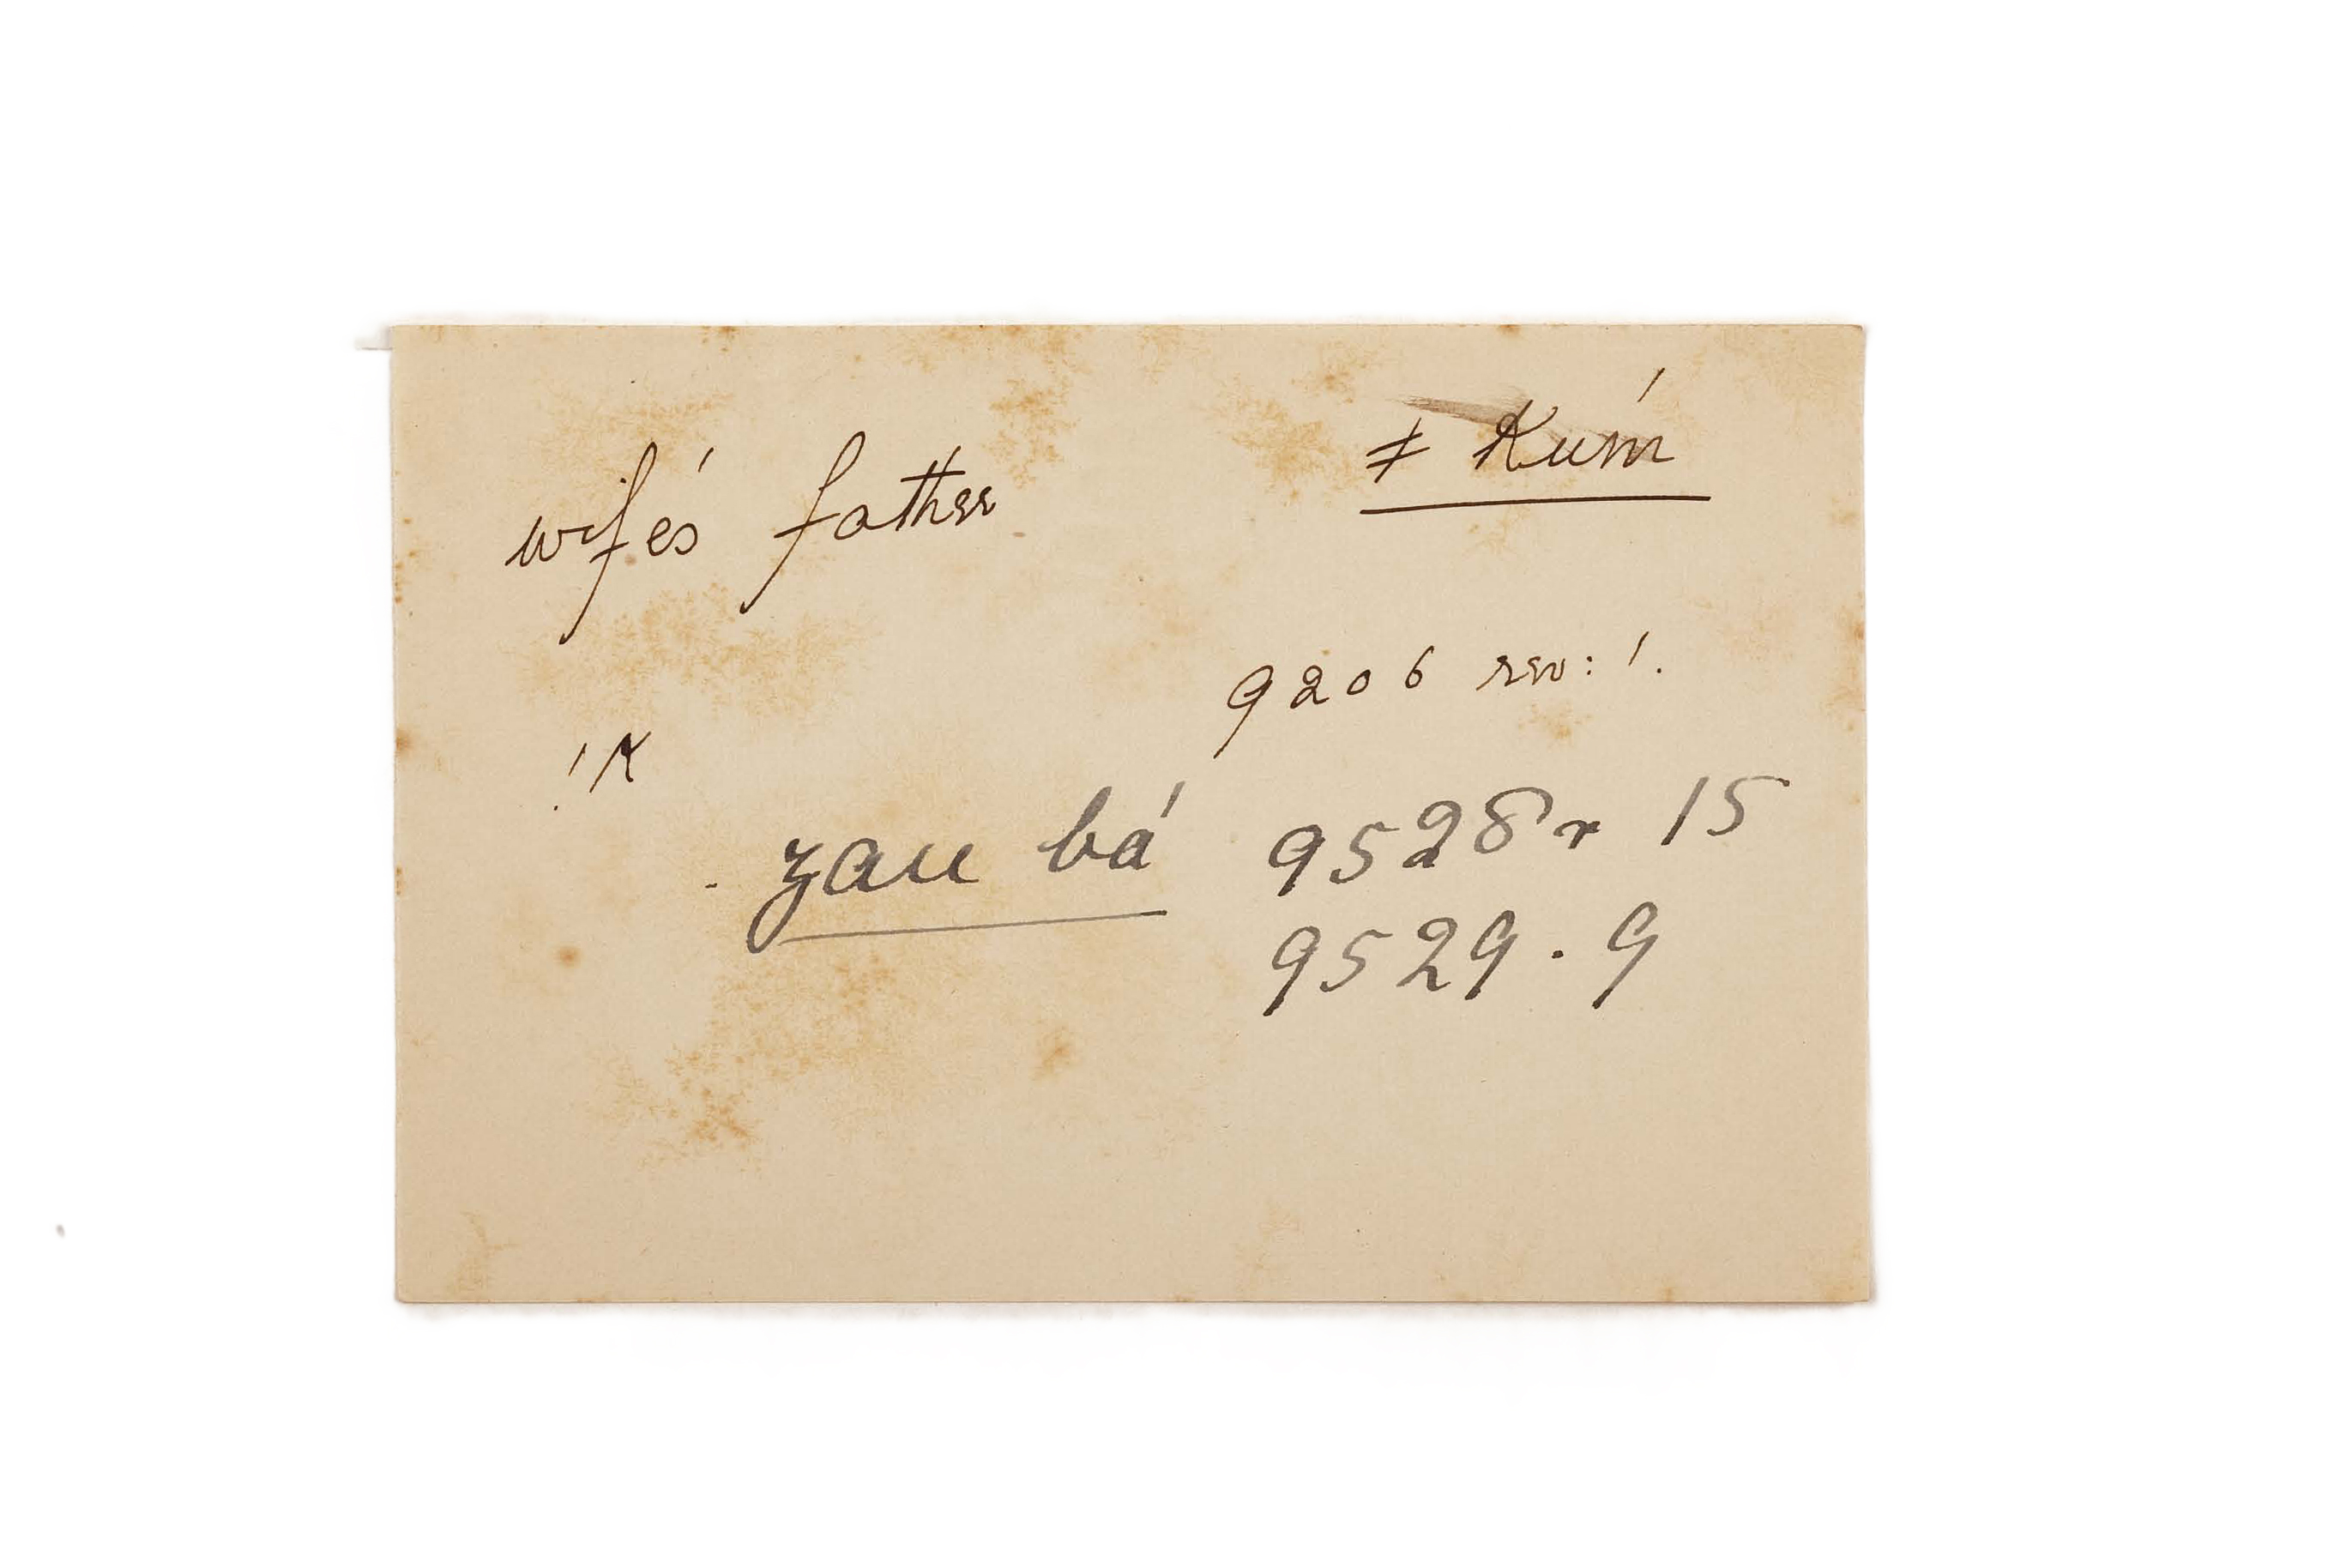 wife's father
ǂ Kum̄́
9206 rev: '.
!K
zau bá 9528r 15
9529.9